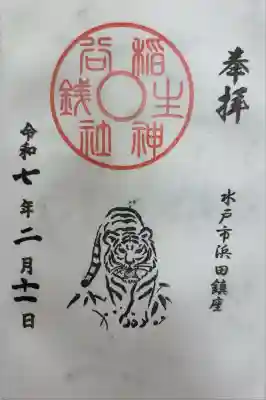 奉拝
水戸市浜田鎮座
稲生神社
谷銭
令和七年二月十一日